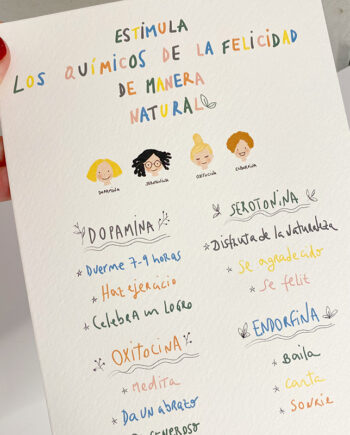 ESTIMULA
LOS QUÍMICOS DE LA FELICIDAD
DE MANERA
NATURAL
DOPAMINA
SEROTONINA
OXITOCINA
ENDORFINA
DOPAMINA
* DUERME 7-9 HORAS
* Haz ejercicio
* Celebra un logro
SEROTONINA
* Disfruta de la naturaleza
* Se agradecido
* Se felit
OXITOCINA
* Medita
* Da un abrazo
* Se generoso
ENDORFINA
* Baila
* canta
* sonríe